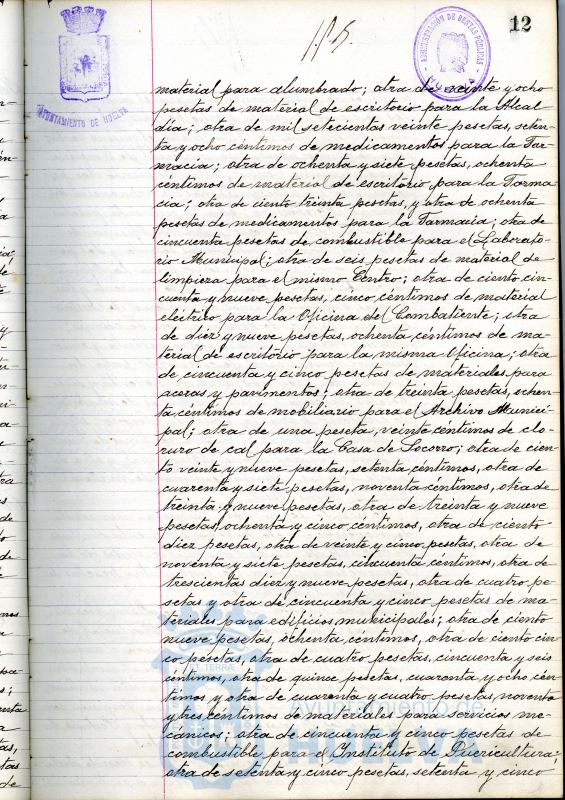 12
AYUNTAMIENTO DE HUELVA
ADMINISTRACIÓN DE RENTAS PÚBLICAS
HUELVA
material para alumbrado; otra de veinte y ocho
pesetas de material de escritorio para la Alcal
día; otra de mil setecientas veinte pesetas, seten-
ta y ocho céntimos de medicamentos para la Far-
macia; otra de ochenta y siete pesetas, ochenta
céntimos de material de escritorio para la Farma
cia; otra de ciento treinta pesetas, y otra de ochenta
pesetas de medicamentos para la Farmacia; otra de
cincuenta pesetas de combustible para el Laborato-
rio Municipal; otra de seis pesetas de material de
limpieza para el mismo Centro; otra de ciento cin-
cuenta y nueve pesetas, cinco céntimos de material
eléctrico para la Oficina del Combatiente; otra
de diez y nueve pesetas, ochenta céntimos de ma-
terial de escritorio para la misma Oficina; otra
de cincuenta y cinco pesetas de materiales para
aceras y pavimentos; otra de treinta pesetas, ochen-
ta céntimos de mobiliario para el Archivo Munici-
pal; otra de una peseta, veinte céntimos de clo-
ruro de cal para la Casa de Socorro; otra de cien-
to veinte y nueve pesetas, setenta céntimos, otra de
cuarenta y siete pesetas, noventa céntimos, otra de
treinta y nueve pesetas, otra de treinta y nueve
pesetas, ochenta y cinco céntimos, otra de ciento
diez pesetas, otra de veinte y cinco pesetas, otra de
noventa y siete pesetas, cincuenta céntimos, otra de
trescientas diez y nueve pesetas, otra de cuatro pe
setas y otra de cincuenta y cinco pesetas de ma-
teriales para edificios municipales; otra de ciento
nueve pesetas, ochenta céntimos, otra de ciento cin
co pesetas, otra de cuatro pesetas, cincuenta y seis
céntimos, otra de quince pesetas, cuarenta y ocho cén
timos y otra de cuarenta y cuatro pesetas, noventa
y tres céntimos de materiales para servicios me-
cánicos; otra de cincuenta y cinco pesetas de
combustible para el Instituto de Puericultura;
otra de setenta y cinco pesetas, setenta y cinco
Ayuntamiento de